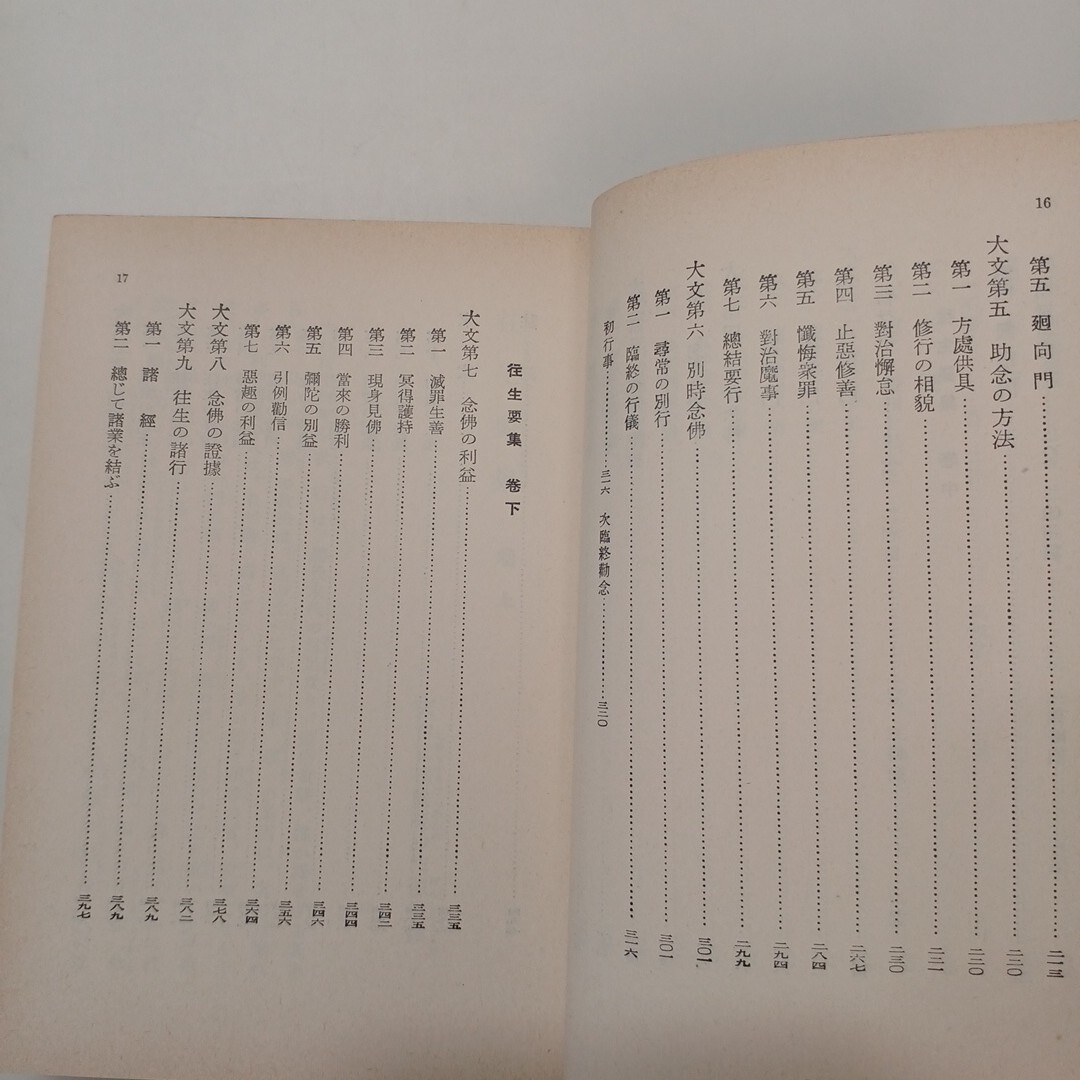 16
第五 廻向門……二一三
大文第五 助念の方法……二二〇
第一 方處供具……二二〇
第二 修行の相貌……二二一
第三 對治懈怠……二三〇
第四 止惡修善……二六七
第五 懺悔衆罪……二八四
第六 對治魔事……二九四
第七 總結要行……二九九
大文第六 別時念佛……三〇一
第一 尋常の別行……三〇一
第二 臨終の行儀……三一六
初行事……三一六 次臨終勸念……三二〇
17
往生要集 卷下
大文第七 念佛の利益……三三五
第一 滅罪生善……三三五
第二 冥得護持……三四二
第三 現身見佛……三四四
第四 當來の勝利……三四六
第五 彌陀の別益……三五六
第六 引例勸信……三六四
第七 惡趣の利益……三七八
大文第八 念佛の證據……三八二
大文第九 往生の諸行……三八九
第一 諸經……三八九
第二 總じて諸業を結ぶ……三九七